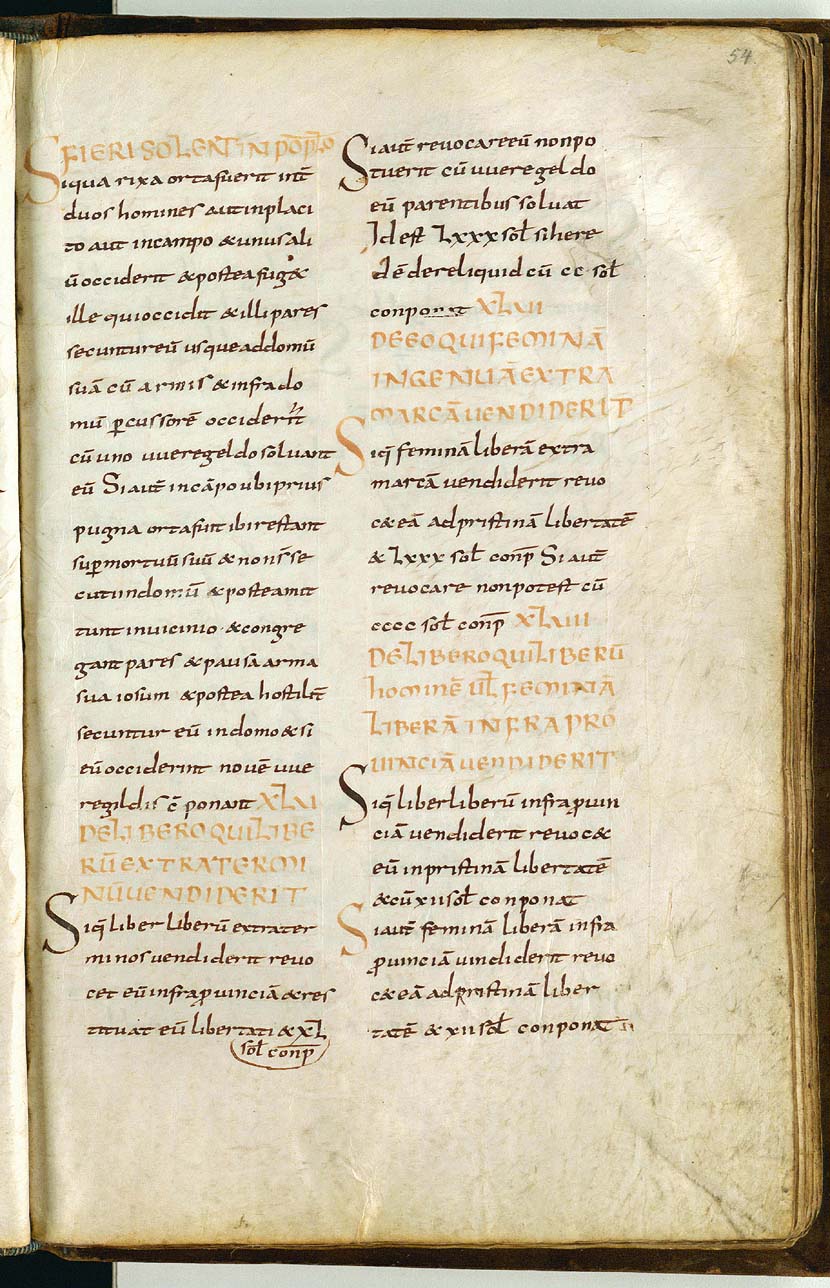 54
FIERI SOLENT IN POPŁO
Siqua rixa orta fuerit int̄
duos homines aut in placi
to aut in campo & unus ali
ū occiderit & postea fug&
ille qui occidit & illi pares
secuntur eū usque ad domū
suā cū armis & infra do
mū p̄cussorē occiderit
cū uno uueregeldo soluant
eū Si aut̄ in cāpo ubi prius
pugna orta fuit ibi restant
sup̄ mortuū suū & non s̄ se
cuti in domū & postea mit
tunt in uicinio & congre
gant pares & pausā arma
sua iosum & postea hostilit̄
secuntur eū in domo & si
eū occiderint nouē uue
regildis c̄ponant XLVI
DE LIBERO QUI LIBE
RŪ EXTRA TERMI
NŪ UENDIDERIT
Siq̄ liber liberū extra ter
minos uendiderit reuo
cet eū infra ꝓuinciā & res
tituat eū libertati & XL
soł conp̄
Si aut̄ reuocare eū non po
tuerit cū uueregeldo
eū parentibus soluat
Id est Lxxx soł si here
dē dereliquid cū cc soł
conponat XLVII
DE EO QUI FEMINĀ
INGENUĀ EXTRA
MARCĀ UENDIDERIT
Siq̄ feminā liberā extra
marcā uendiderit reuo
c& eā ad pristinā libertatē
& Lxxx soł conp̄ Si aut̄
reuocare non potest cū
cccc soł conp̄ XLVIII
DE LIBERO QUI LIBERŪ
hominē uł FEMINĀ
LIBERĀ INFRA PRO
UINCIĀ UENDIDERIT
Siq̄ liber liberū infra ꝓuin
ciā uendiderit reuoc&
eū in pristinā libertatē
& cū xii soł conponat
Si aut̄ feminā liberā infra
ꝓuinciā uindiderit reuo
c& eā ad pristinā liber
tatē & xii soł conponat